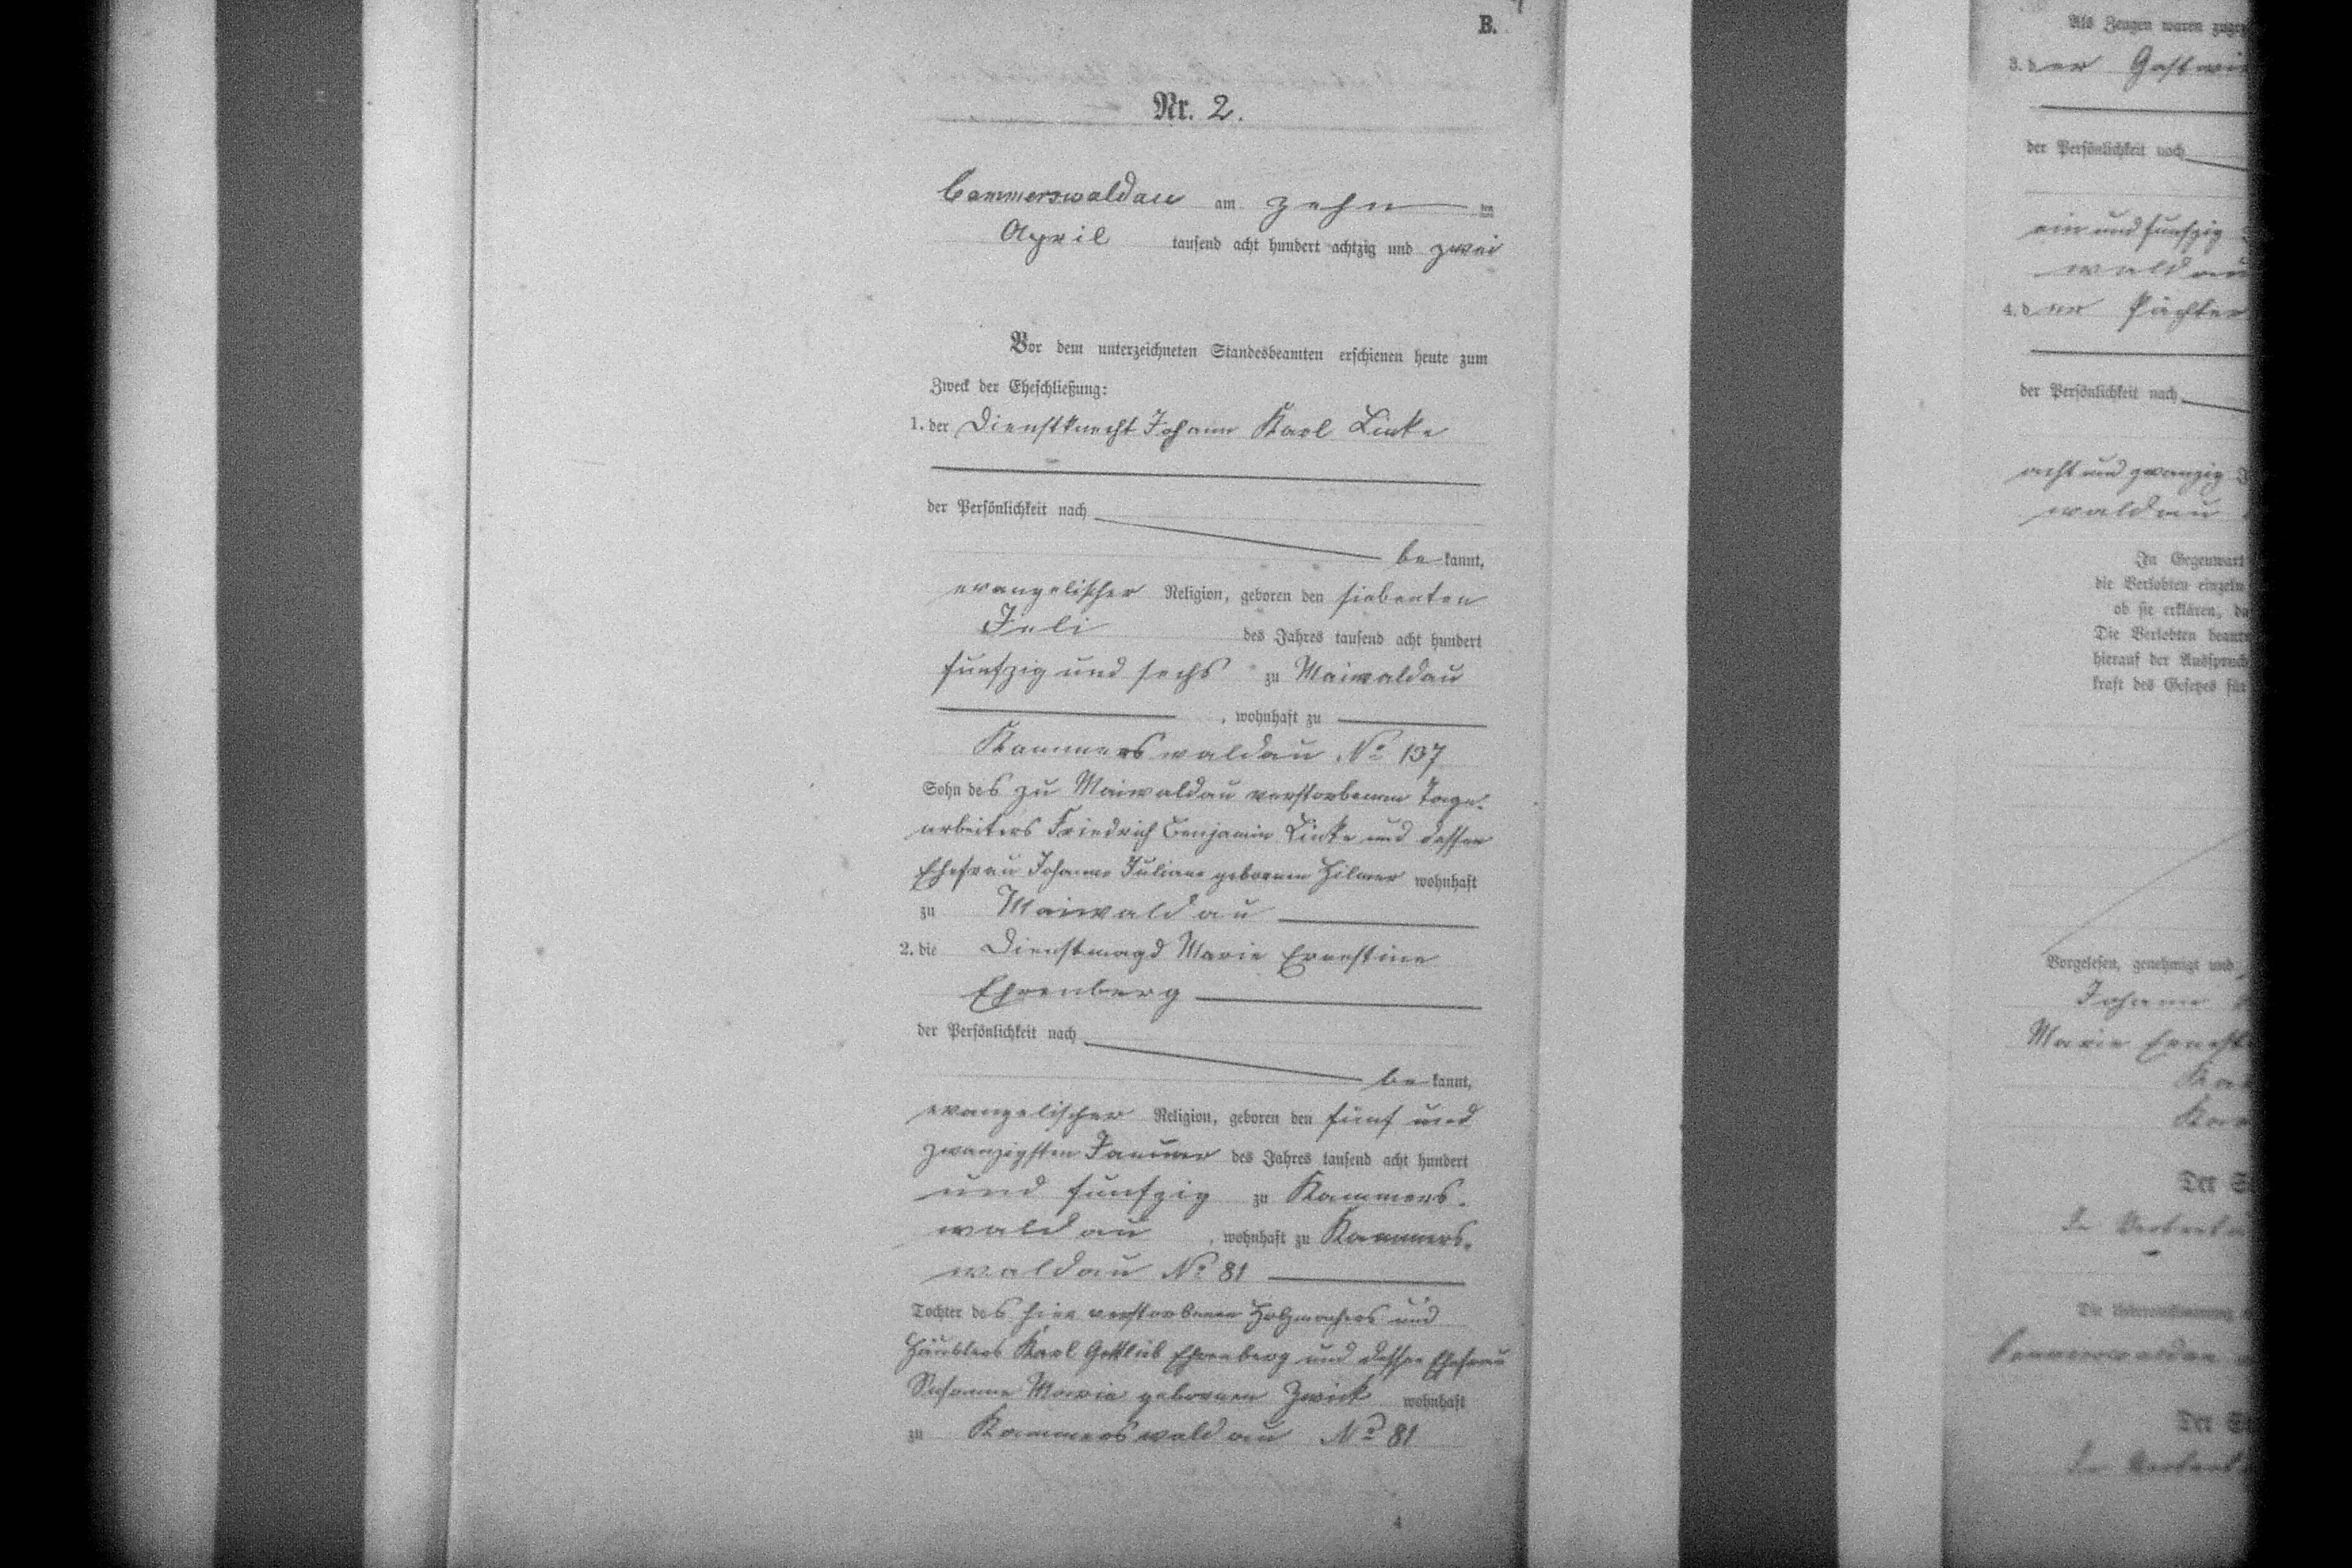 B.
Nr. 2.
Cammerswaldau am zehn ten
April tausend acht hundert achtzig und zwei
Vor dem unterzeichneten Standesbeamten erschienen heute zum
Zweck der Eheschließung:
1. der Dienstknecht Johann Karl Linke
der Persönlichkeit nach
be kannt,
evangelischer Religion, geboren den siebenten
Juli des Jahres tausend acht hundert
funfzig und sechs zu Maiwaldau
, wohnhaft zu
Kammerswaldau No 137
Sohn des zu Maiwaldau verstorbenen Tage-
arbeiters Friedrich Benjamin Linke und dessen
Ehefrau Johanne Juliane geborenen Hilmer wohnhaft
zu Maiwaldau
2. die Dienstmagd Marie Ernestine
Ehrenberg
der Persönlichkeit nach
be kannt,
evangelischer Religion, geboren den fünf und
zwanzigsten Januar des Jahres tausend acht hundert
und funfzig zu Kammers-
waldau , wohnhaft zu Kammers-
waldau No 81
Tochter des hier verstorbenen Holzmachers und
Häuslers Karl Gottlieb Ehrenberg und dessen Ehefrau
Susanne Marie geborenen Zwick wohnhaft
zu Kammerswaldau No 81
4
Als Zeugen waren
3. der Gastwi
der Persönlichkeit nach
ein und funfzig
waldau
4. der Pächter
der Persönlichkeit nach
acht und zwanzig
waldau
In Gegenwart
die Verlobten einzeln
ob sie erklären,
Die Verlobten
hierauf der Ausspruch
kraft des Gesetzes für
Vorgelesen, genehmigt und
Johann
Marie Ernest
Ka
Kar
Der S
In Vertret
Die Uebereinstimmung
Cammerswaldau
Der St
In Vertret